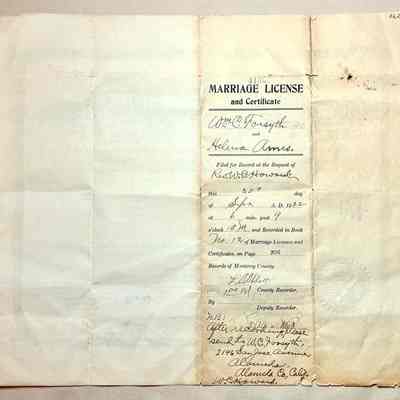 MARRIAGE LICENSE
and Certificate
Wm C. Forsyth
and
Helena Ames.
Filed for Record at the Request of
Rev. W. B. Howard
this 30th day
of A. D.
at 6 min. past 9
o'clock M. and Recorded in Book
No. 12 of Marriage Licenses and
Certificates, on Page
Records of Monterey County
County Recorder.
By
Deputy Recorder.
N.B:
After recording please
send to W.C. Forsyth,
2146 San Jose Avenue
Alameda
Alameda Co, Calif.
W. B. Howard.